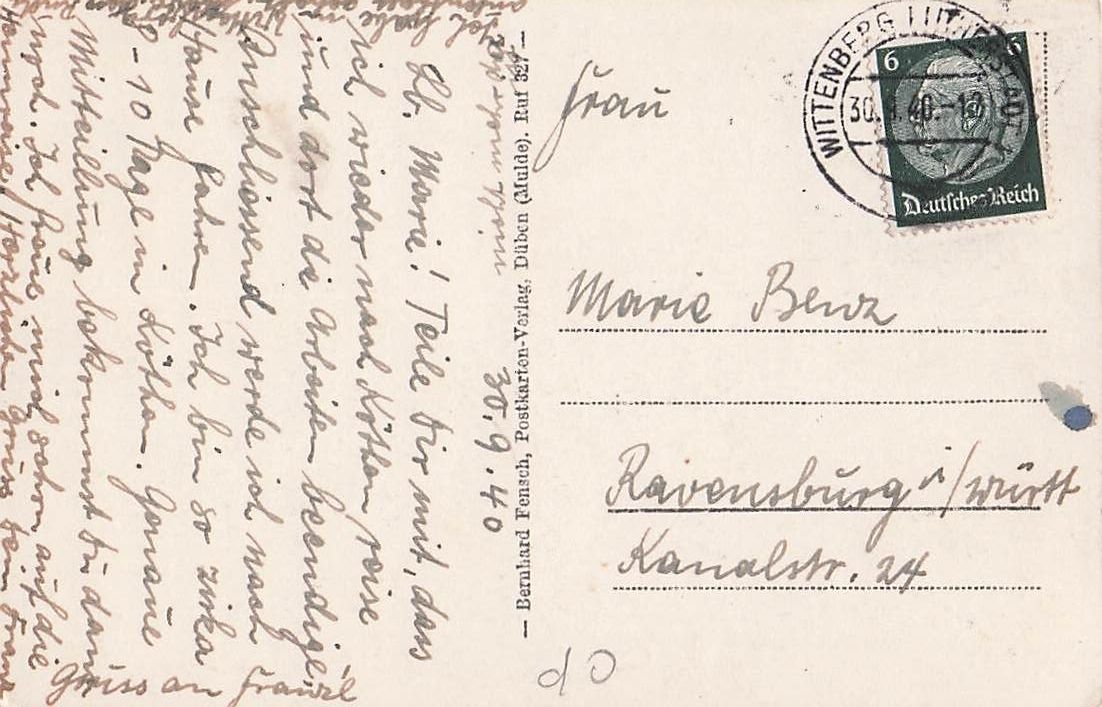 30.9.40
Lb. Marie! Teile dir mit, dass
ich wieder nach Köthen reise
und dort die Arbeiten beendige.
Anschliessend werde ich nach
Hause fahren. Ich bin so zirka
8 - 10 Tage in Köthen. Genaue
Mitteilung bekommst du dann
noch. Ich freue mich schon auf die
Heimreise. Herzliche Grüsse dein Franz
Gruss an
Ich habe
— Bernhard Fensch, Postkarten-Verlag, Düben (Mulde). Ruf 327 —
WITTENBERG LUTHERSTADT
30.9.40.-12
6
6
Deutsches Reich
Frau
Marie Benz
Ravensburg i/Württ
Kanalstr. 24